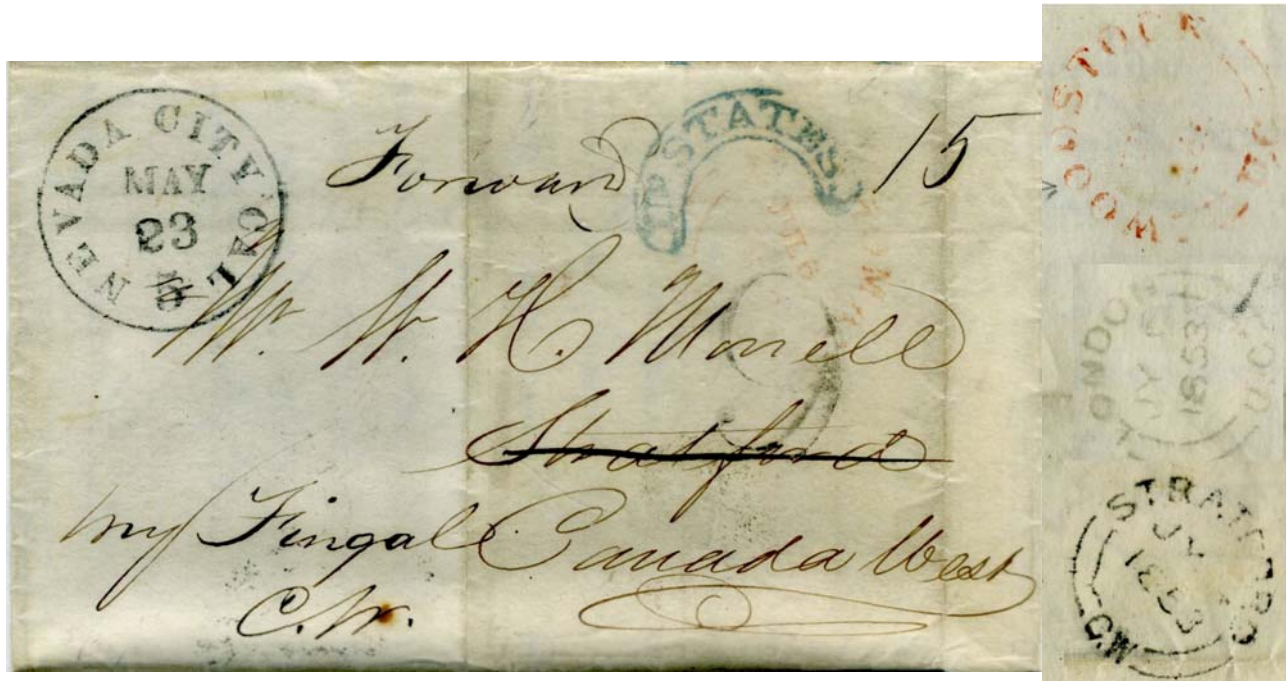 NEVADA CITY CAL
MAY
23
Forward
STATES
15
Mr. W. H. Morrell
Stratford
Fingal Canada West
C.W.
WOODSTOCK
LONDON U.C.
JY
1853
STRATFORD
JY
1853
C.W